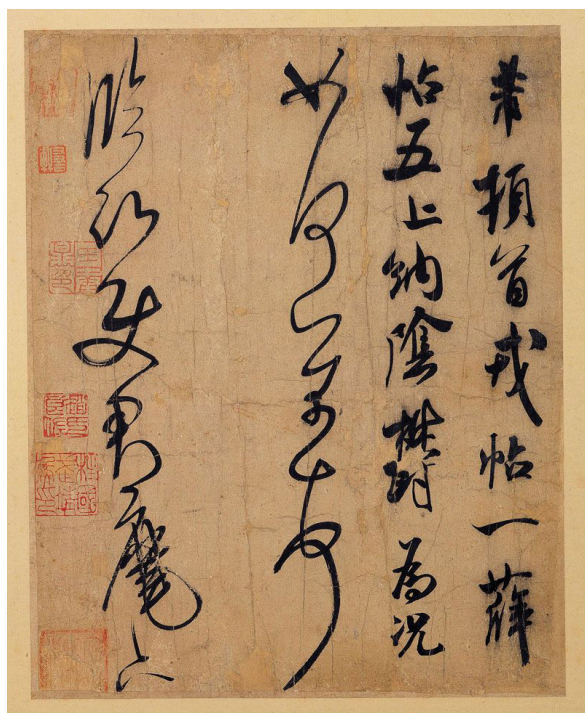 芾頓首戎帖一薛
帖五上納陰鬱為況
如何芾頓首
臨沂使君麾下